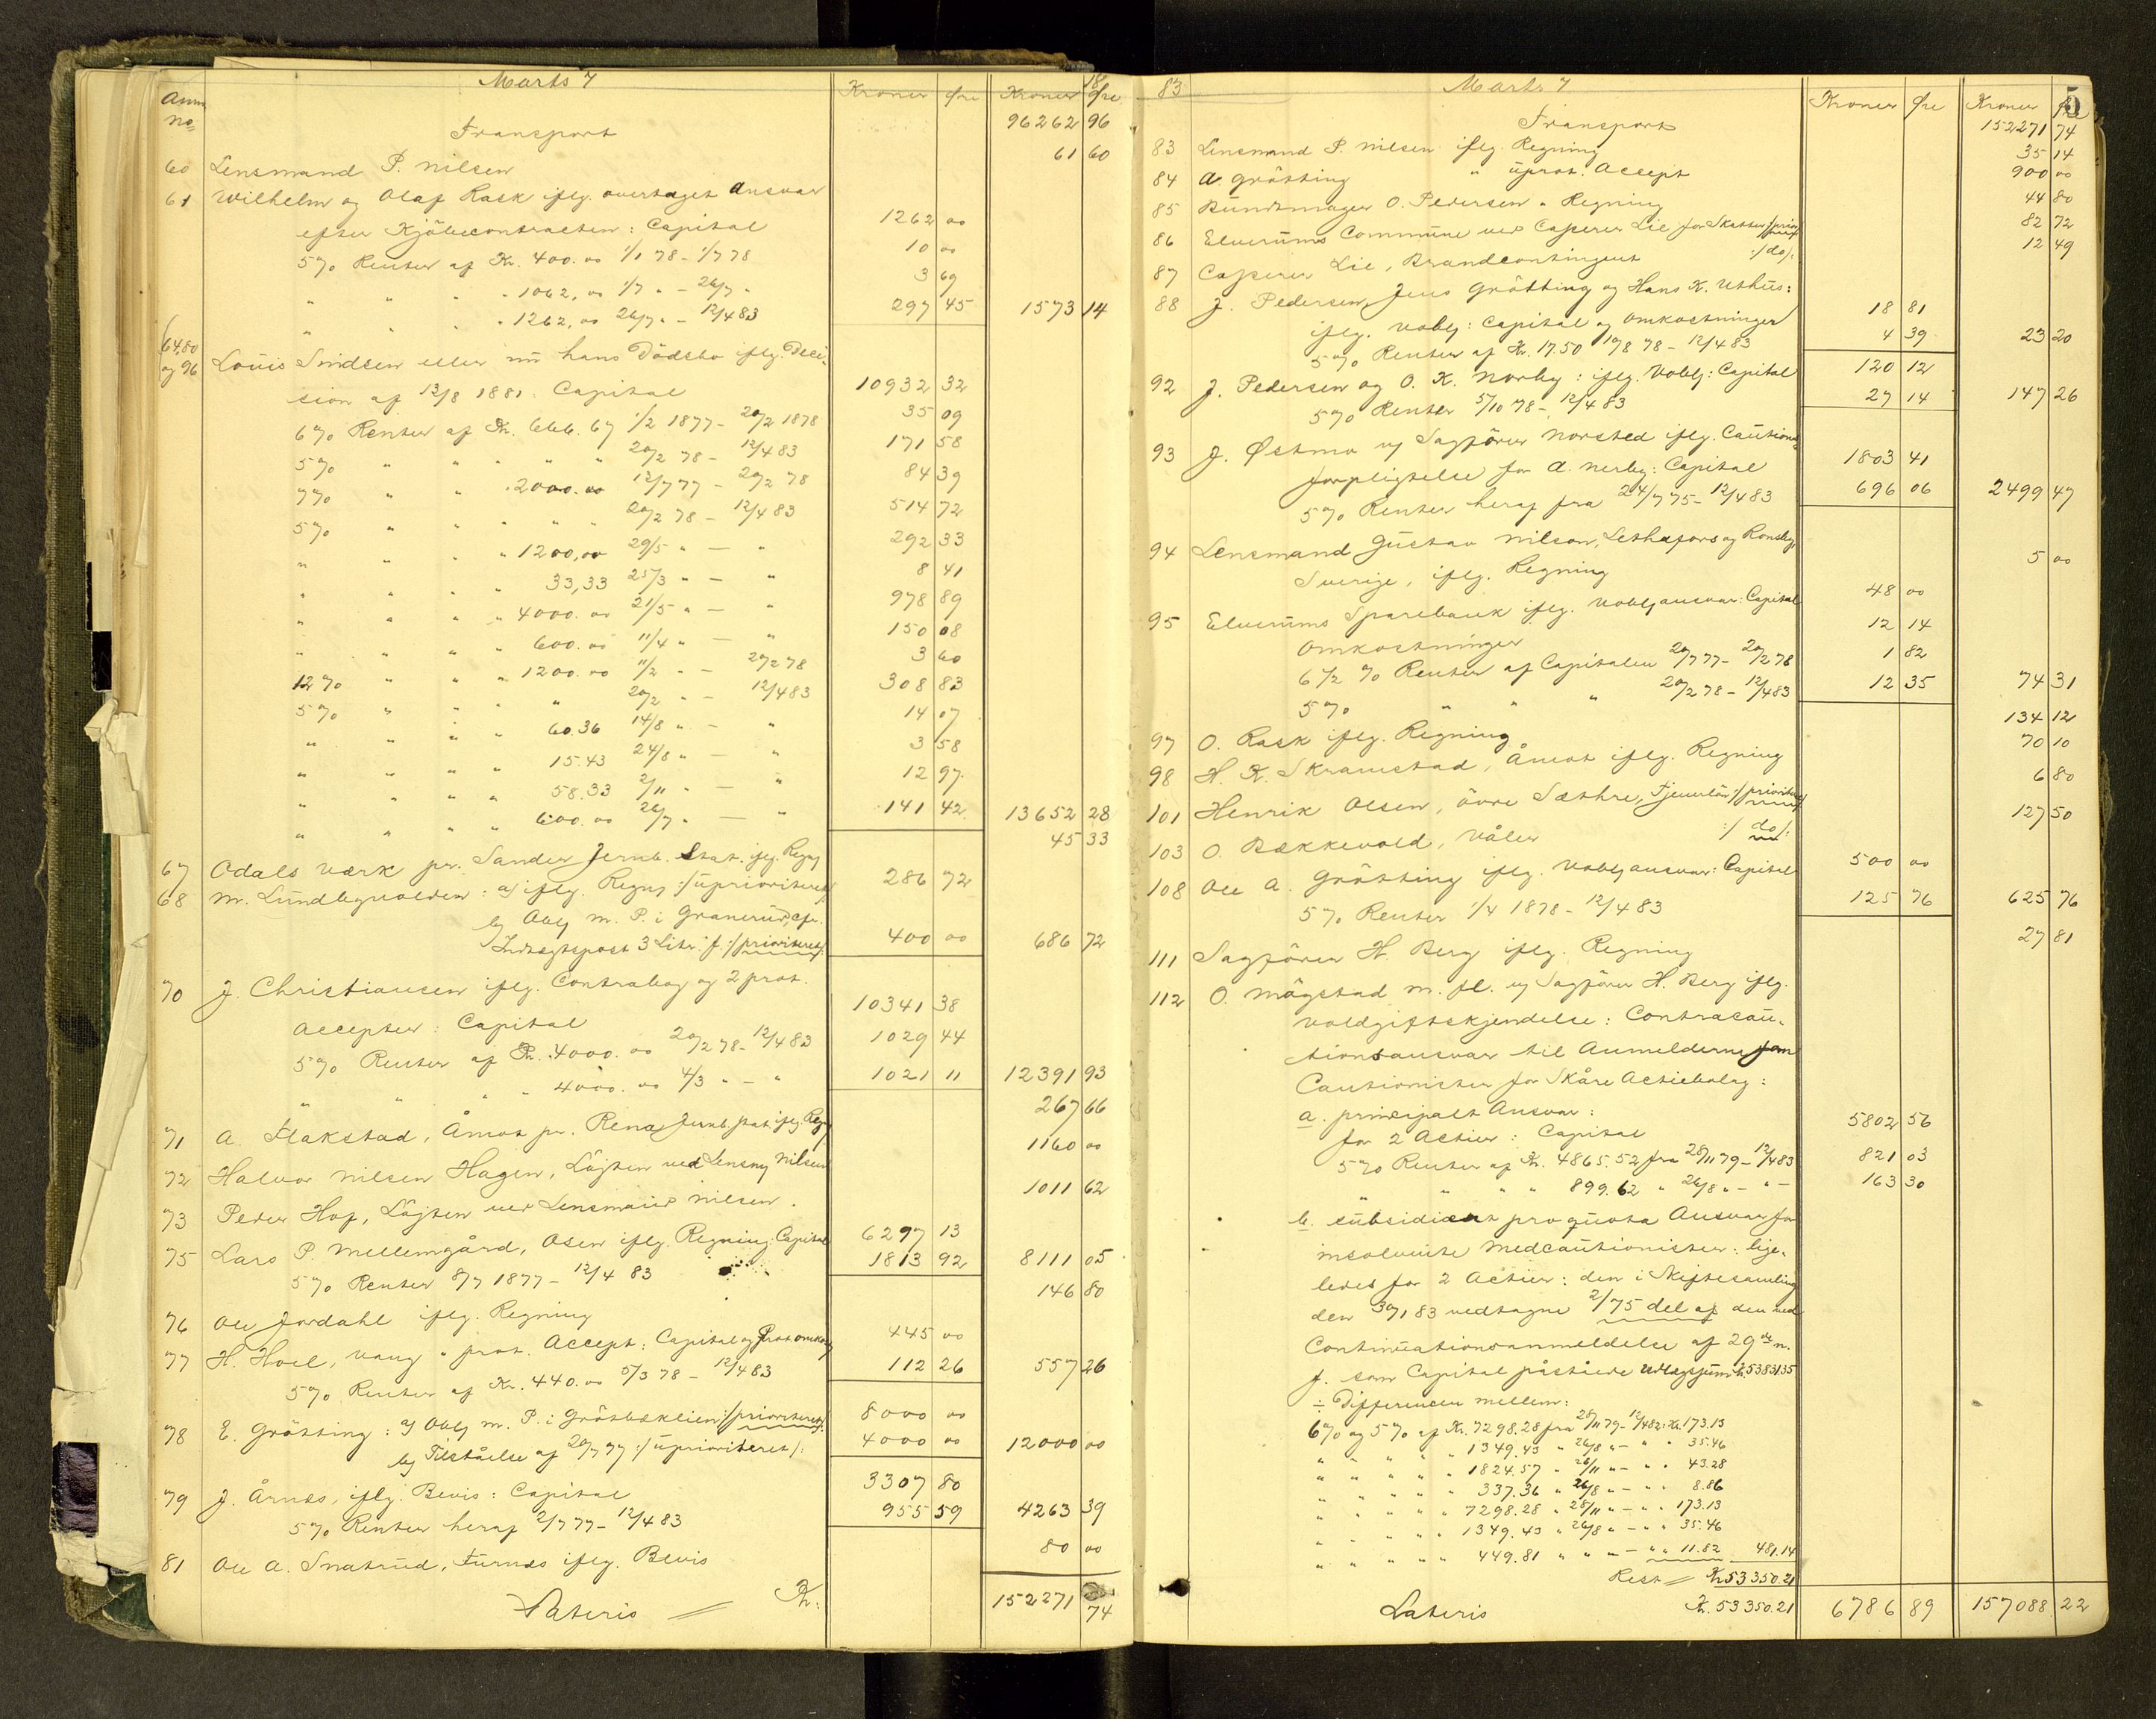 Marts 7 Kroner Øre Kroner 18 Øre
Anm. No
Transport 96262 96
60 Lensmand P. Nilsen 61 60
61 Wilhelm og Olaf Rask iflg. overtaget Ansvar
efter Kjöbecontracten: Capital 1262 00
5 % Renter af Kr. 400.00 1/1 78 - 1/7 78 10 00
" " " " 1062,00 1/7 " - 26/7 " 3 69
" " " " 1262,00 26/7 " - 12/4 83 297 45 1573 14
64,80 og 96 Louis Smidsen eller nu hans Dödsbo iflg. Deci-
sion af 13/8 1881: Capital 10932 32
6 % Renter af Kr. 666.67 1/2 1877 - 20/2 1878 35 09
5 % " " " " " 20/2 78 - 12/4 83 171 58
7 % " " " 2000.00 12/7 77 - 20/2 78 84 39
5 % " " " " " 20/2 78 - 12/4 83 514 72
" " " " 1200,00 29/5 " — " 292 33
" " " " 33,33 25/3 " — " 8 41
" " " " 4000.00 21/5 " — " 978 89
" " " " 600.00 11/4 " — " 150 08
12 % " " " 1200.00 11/2 " - 20/2 78 3 60
5 % " " " " 20/2 " - 12/4 83 308 83
" " " " 60.36 14/8 " — " 14 07
" " " " 15.43 24/8 " — " 3 58
" " " " 58.33 2/11 " — " 12 97
" " " " 600.00 26/7 " — " 141 42 13652 28
67 Odals Værk pr. Sander Jernb. Stat. iflg. Regng 45 33
68 M. Lundbyvolden: a) iflg. Regng :/uprioriteret/: 286 72
b) Oblg m. P. i Granerud, cfr.
Indtægtspost 3 Litr. f :/prioriteret/: 400 00 686 72
70 J. Christiansen iflg. Contrabog og 2 prot.
Accepter: Capital 10341 38
5 % Renter af Kr. 4000.00 20/2 78 - 12/4 83 1029 44
" " " " 4000.00 4/3 " - " 1021 11 12391 93
71 A. Flakstad, Åmot pr. Rena Jernb. stat. iflg. Regng 267 66
72 Halvor Nilsen Hagen, Löjten ved Lensmd Nilsen 1160 00
73 Peder Hof, Löjten ved Lensmand Nilsen. 1011 62
75 Lars P. Mellemgård, Osen iflg. Regning: Capital 6297 13
5 % Renter 8/7 1877 - 12/4 83 1813 92 8111 05
76 Ole Jordahl iflg. Regning 146 80
77 H. Hoel, Vang " prot. Accept: Capital og Protomkostg 445 00
5 % Renter af Kr. 440.00 5/3 78 - 12/4 83 112 26 557 26
78 E. Grötting: a) Oblg m. P. i Grötbæklien :/prioriteret/: 8000 00
b) Tilståelse af 20/7 77 :/uprioriteret/: 4000 00 12000 00
79 J. Årnæs, iflg. Bevis: Capital 3307 80
5 % Renter heraf 2/7 77 - 12/4 83 955 59 4263 39
81 Ole A. Snatrud, Furnæs iflg. Bevis 80 00
Lateris Kr: 152271 74
83 Marts 7 Kroner Øre Kroner Øre 5
Transport 152271 74
83 Lensmand P. Nilsen iflg. Regning 35 14
84 A. Grötting " uprot. Accept 900 00
85 Bundtmager O. Pedersen " Regning 44 80
86 Elverums Commune ved Casserer Lie for Skatter :/prior. 82 72
87 Casserer Lie, Brandcontingent :/do/: 12 49
88 J. Pedersen, Jens Grötting og Hans K. Uthus:
iflg. Vobl: Capital og Omkostninger 18 81
5 % Renter af Kr. 17.50 10/8 78 - 12/4 83 4 39 23 20
92 J. Pedersen og O. K. Norby: iflg. Vobl: Capital 120 12
5 % Renter 5/10 78 - 12/4 83 27 14 147 26
93 J. Østmo v/ Sagförer Norsted iflg. Cautions-
forpligtelse for A. Nerby: Capital 1803 41
5 % Renter heraf fra 24/7 75 - 12/4 83 696 06 2499 47
94 Lensmand Gustav Nilson, Lethafors og Ronsby,
Sverige, iflg. Regning 5 00
95 Elverums Sparebank iflg. Voblgansvar: Capital 48 00
Omkostninger 12 14
6 1/2 % Renter af Capitalen 20/7 77 - 20/2 78 1 82
5 % " " " 20/2 78 - 12/4 83 12 35 74 31
97 O. Rask iflg. Regning 134 12
98 H. K. Skramstad, Åmot iflg. Regning 70 10
101 Henrik Olsen, övre Sæthre, Tjenerlön :/prioriteret/: 6 80
103 O. Bækkevold, Våler :/do/: 127 50
108 Ole A. Grötting iflg. Voblgansvar: Capital 500 00
5 % Renter 1/4 1878 - 12/4 83 125 76 625 76
111 Sagförer H. Berg iflg. Regning 27 81
112 O. Mögstad m. fl. v/ Sagförer H. Berg iflg.
Voldgiftskjendelse: Contracau-
tionsansvar til Anmelderne som
Cautionister for Skåre Actiebolag:
a. principalt Ansvar:
for 2 Actier: Capital 5802 56
5 % Renter af Kr. 4865.52 fra 28/11 79 - 12/4 83 821 03
" " " " 899.62 " 26/8 " - " - 163 30
b. subsidiært pro quota Ansvar for
insolvente Medcautionister: lige-
ledes for 2 Actier: den i Skiftesamling
den 30/1 83 vedtagne 2/75 del af den ved
Continuationsanmeldelse af 29de n.
f. som Capital påståede Udlægssum Kr. 53831.35
÷ Differencen mellem:
6 % og 5 % af Kr. 7298.28 fra 28/11 79 - 12/4 82: Kr. 173.13
" " " " " 1349.43 " 26/8 " - " " 35.46
" " " " " 1824.57 " 26/11 " - " " 43.28
" " " " " 337.36 " 26/8 " - " " 8.86
" " " " " 7298.28 " 28/11 " - " " 173.13
" " " " " 1349.43 " 26/8 " - " " 35.46
" " " " " 449.81 " " " - " " 11.82 481.14
Rest Kr. 53350.21
Lateris Kr. 53350.21 6786 89 157088 22